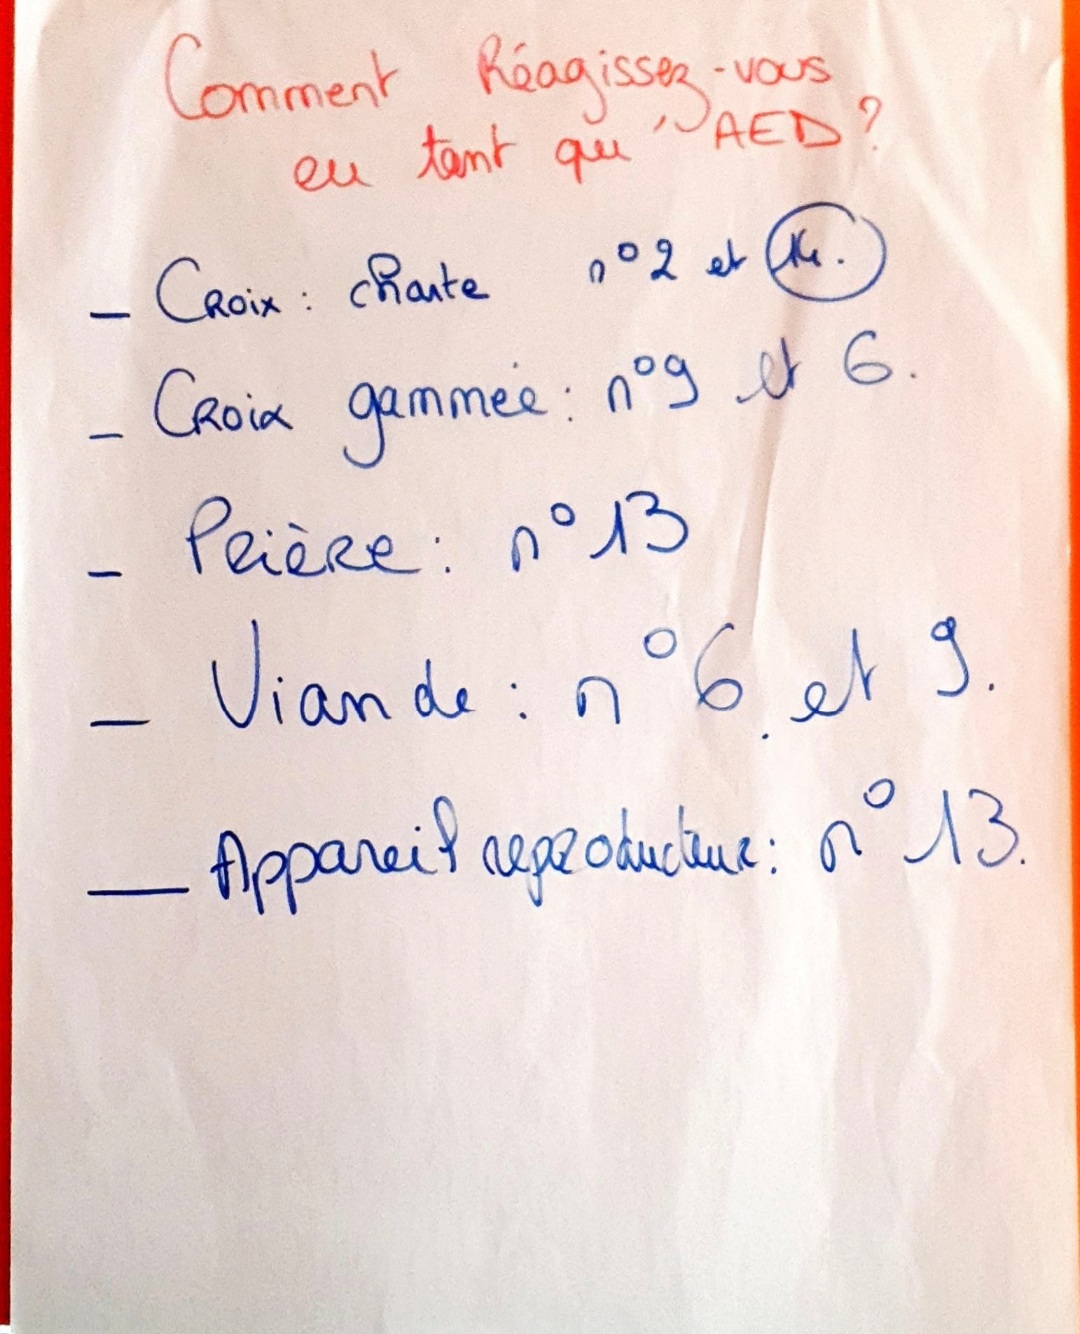 Comment Réagissez-vous
en tant qu' AED?
- Croix : charte n°2 et 14.
- Croix gammée : n°9 et 6.
- Prière : n°13
- Viande : n°6 et 9.
- Appareil reproducteur : n°13.